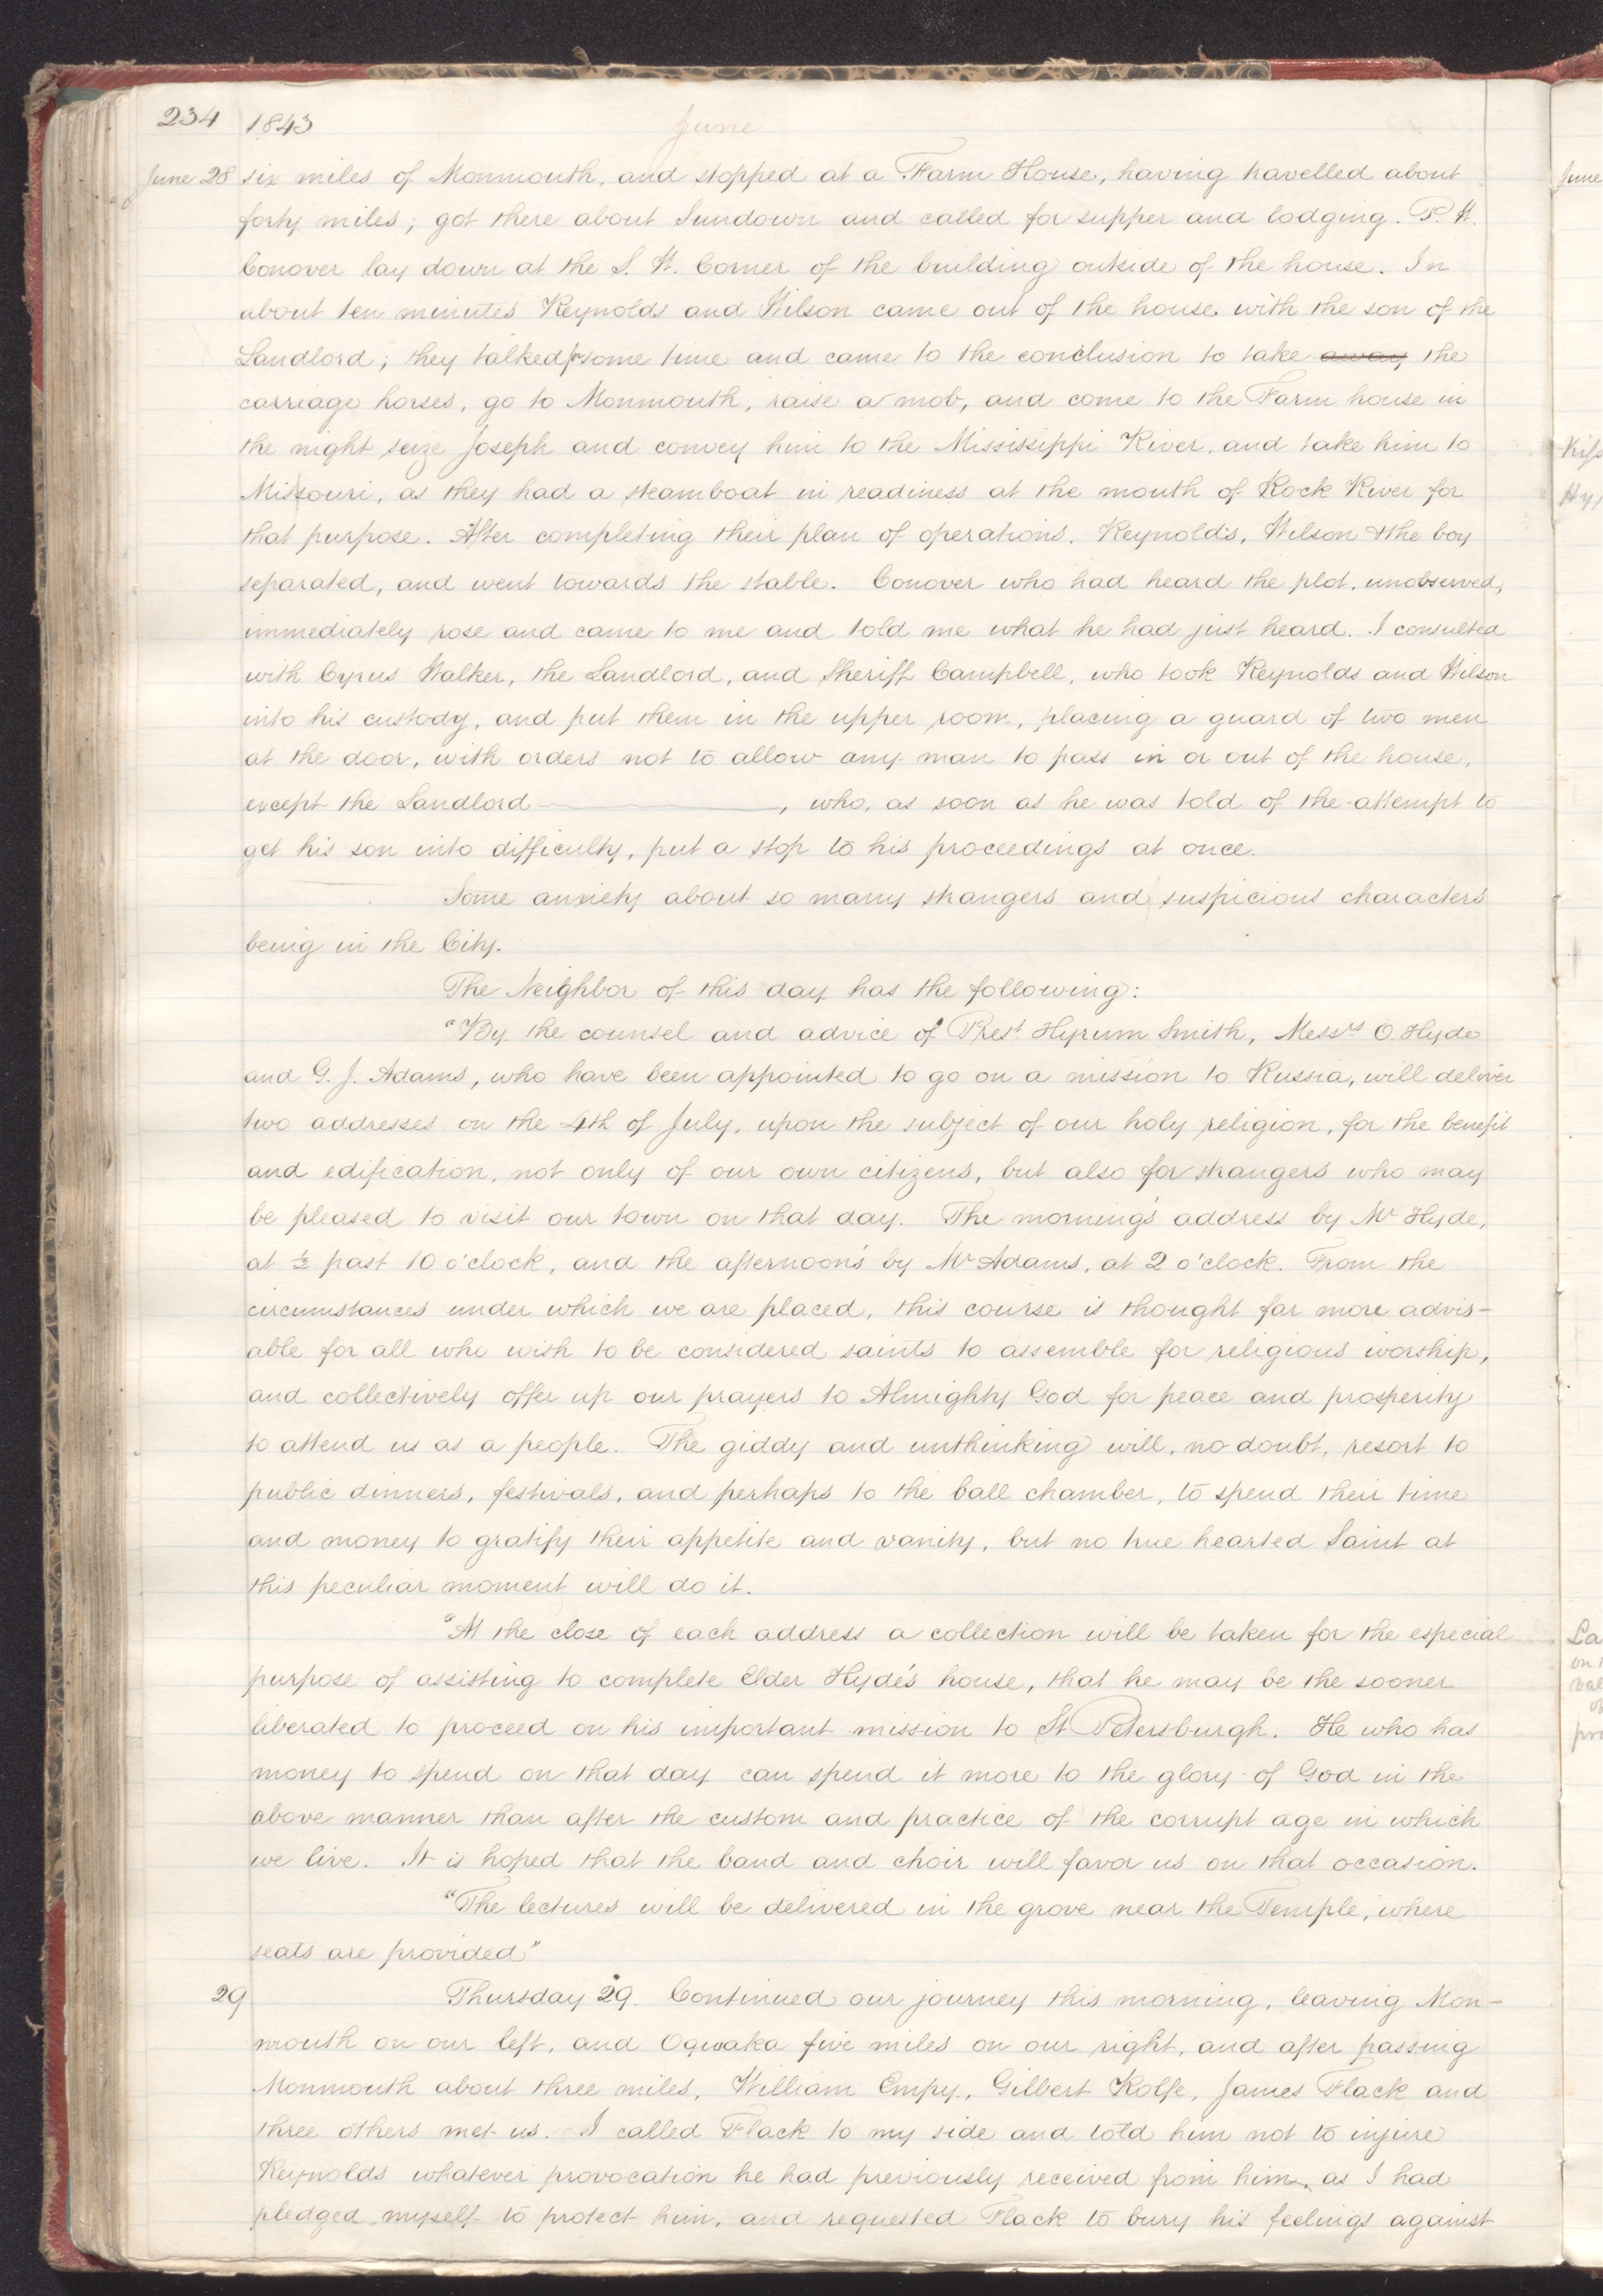 234 1843 June
June 28 six miles of Monmouth, and stopped at a Farm House, having travelled about
forty miles; got there about Sundown and called for supper and lodging. P. W.
Conover lay down at the S. W. Corner of the building outside of the house. In
about ten minutes Reynolds and Wilson came out of the house with the son of the
Landlord; they talked for some time and came to the conclusion to take away the
carriage horses, go to Monmouth, raise a mob, and come to the Farm house in
the night seize Joseph and convey him to the Mississippi River, and take him to
Missouri, as they had a steamboat in readiness at the mouth of Rock River for
that purpose. After completing their plan of operations, Reynolds, Wilson & the boy
separated, and went towards the stable. Conover who had heard the plot, unobserved,
immediately rose and came to me and told me what he had just heard. I consulted
with Cyrus Walker, the Landlord, and Sheriff Campbell, who took Reynolds and Wilson
into his custody, and put them in the upper room, placing a guard of two men
at the door, with orders not to allow any man to pass in or out of the house,
except the Landlord ————, who, as soon as he was told of the attempt to
get his son into difficulty, put a stop to his proceedings at once.
Some anxiety about so many strangers and suspicious characters
being in the City.
The Neighbor of this day has the following:
"By the counsel and advice of Prest. Hyrum Smith, Messrs O. Hyde
and G. J. Adams, who have been appointed to go on a mission to Russia, will deliver
two addresses on the 4th of July, upon the subject of our holy religion, for the benefit
and edification, not only of our own citizens, but also for strangers who may
be pleased to visit our town on that day. The morning's address by Mr Hyde,
at ½ past 10 o'clock, and the afternoon's by Mr Adams, at 2 o'clock. From the
circumstances under which we are placed, this course is thought far more advis-
able for all who wish to be considered saints to assemble for religious worship,
and collectively offer up our prayers to Almighty God for peace and prosperity
to attend us as a people. The giddy and unthinking will, no doubt, resort to
public dinners, festivals, and perhaps to the ball chamber, to spend their time
and money to gratify their appetite and vanity, but no true hearted Saint at
this peculiar moment will do it.
"At the close of each address a collection will be taken for the especial
purpose of assisting to complete Elder Hyde's house, that he may be the sooner
liberated to proceed on his important mission to St Petersburgh. He who has
money to spend on that day can spend it more to the glory of God in the
above manner than after the custom and practice of the corrupt age in which
we live. It is hoped that the band and choir will favor us on that occasion.
"The lectures will be delivered in the grove near the Temple, where
seats are provided"
29 Thursday 29. Continued our journey this morning, leaving Mon-
mouth on our left, and Oqwaka five miles on our right, and after passing
Monmouth about three miles, William Empy, Gilbert Rolfe, James Flack and
three others met us. I called Flack to my side and told him not to injure
Reynolds whatever provocation he had previously received from him, as I had
pledged myself to protect him, and requested Flack to bury his feelings against
June